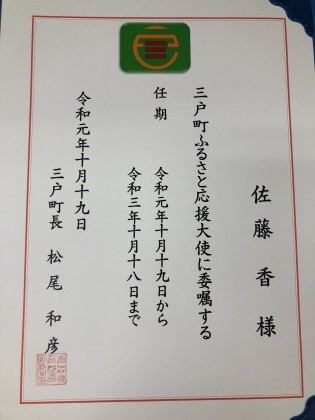 佐藤香様
三戸町ふるさと応援大使に委嘱する
任期
令和元年十月十九日から
令和三年十月十八日まで
令和元年十月十九日
三戸町長 松尾和彦